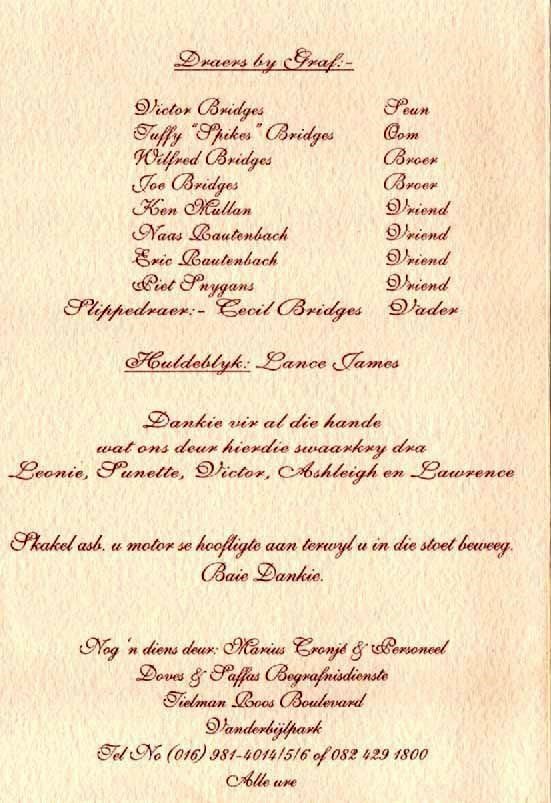 Draers by Graf:-
Victor Bridges Seun
Tuffy "Spikes" Bridges Oom
Wilfred Bridges Broer
Joe Bridges Broer
Ken Mullan Vriend
Naas Rautenbach Vriend
Eric Rautenbach Vriend
Piet Snygans Vriend
Slippedraer:- Cecil Bridges Vader
Huldeblyk: Lance James
Dankie vir al die hande
wat ons deur hierdie swaarkry dra
Leonie, Sunette, Victor, Ashleigh en Lawrence
Skakel asb. u motor se hoofligte aan terwyl u in die stoet beweeg.
Baie Dankie.
Nog 'n diens deur: Marius Cronjé & Personeel
Doves & Saffas Begrafnisdienste
Tielman Roos Boulevard
Vanderbijlpark
Tel No (016) 981-4014/5/6 of 082 429 1800
Alle ure